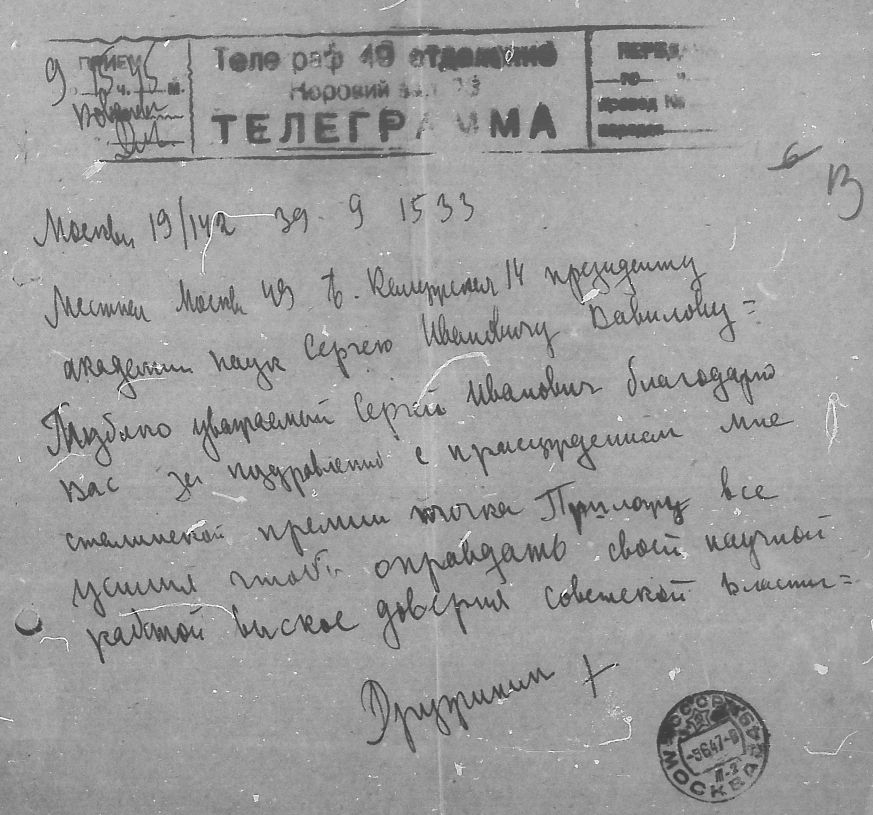 ПРИЕМ
9 15 45
ч. м.
Телеграф 49 отделение
ТЕЛЕГРАММА
ПЕРЕД
го ч.
провод №
передал
6
13
Москвы 19/142 39 9 1533
Местная Москва 49 Б. Калужская 14 президенту
академии наук Сергею Ивановичу Вавилову =
Глубоко уважаемый Сергей Иванович благодарю
вас за поздравление с присуждением мне
сталинской премии точка Приложу все
усилия чтобы оправдать своей научной
работой выское доверия советской власти =
Дружинин +
СССР
-9647-
МОСКВА